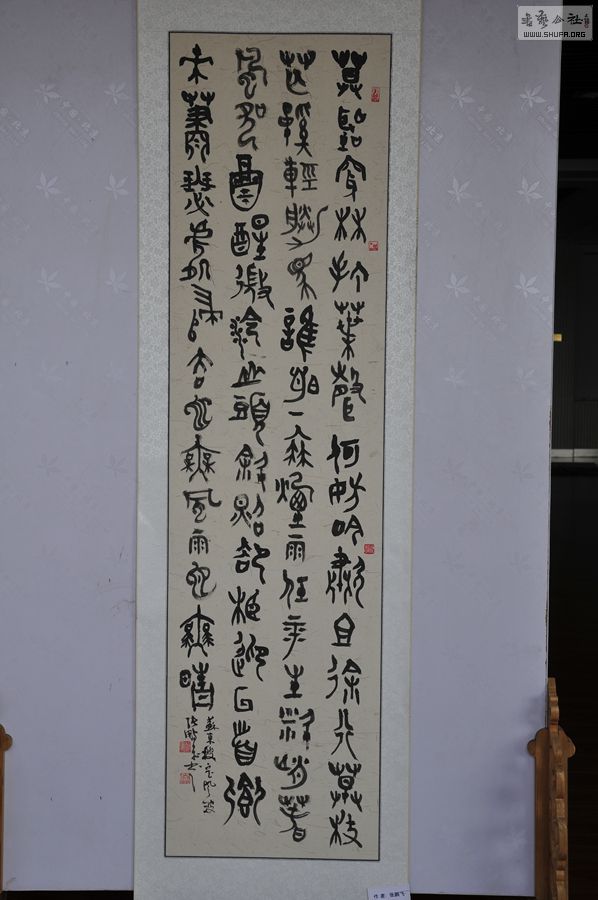 書藝公社
WWW.SHUFA.ORG
莫聽穿林打葉聲何妨吟嘯且徐行竹杖
芒鞋輕勝馬誰怕一蓑煙雨任平生料峭春
風吹酒醒微冷山頭斜照卻相迎回首向
來蕭瑟處歸去也無風雨也無晴
蘇東坡定風波
張鵬飛书
作者 张鹏飞